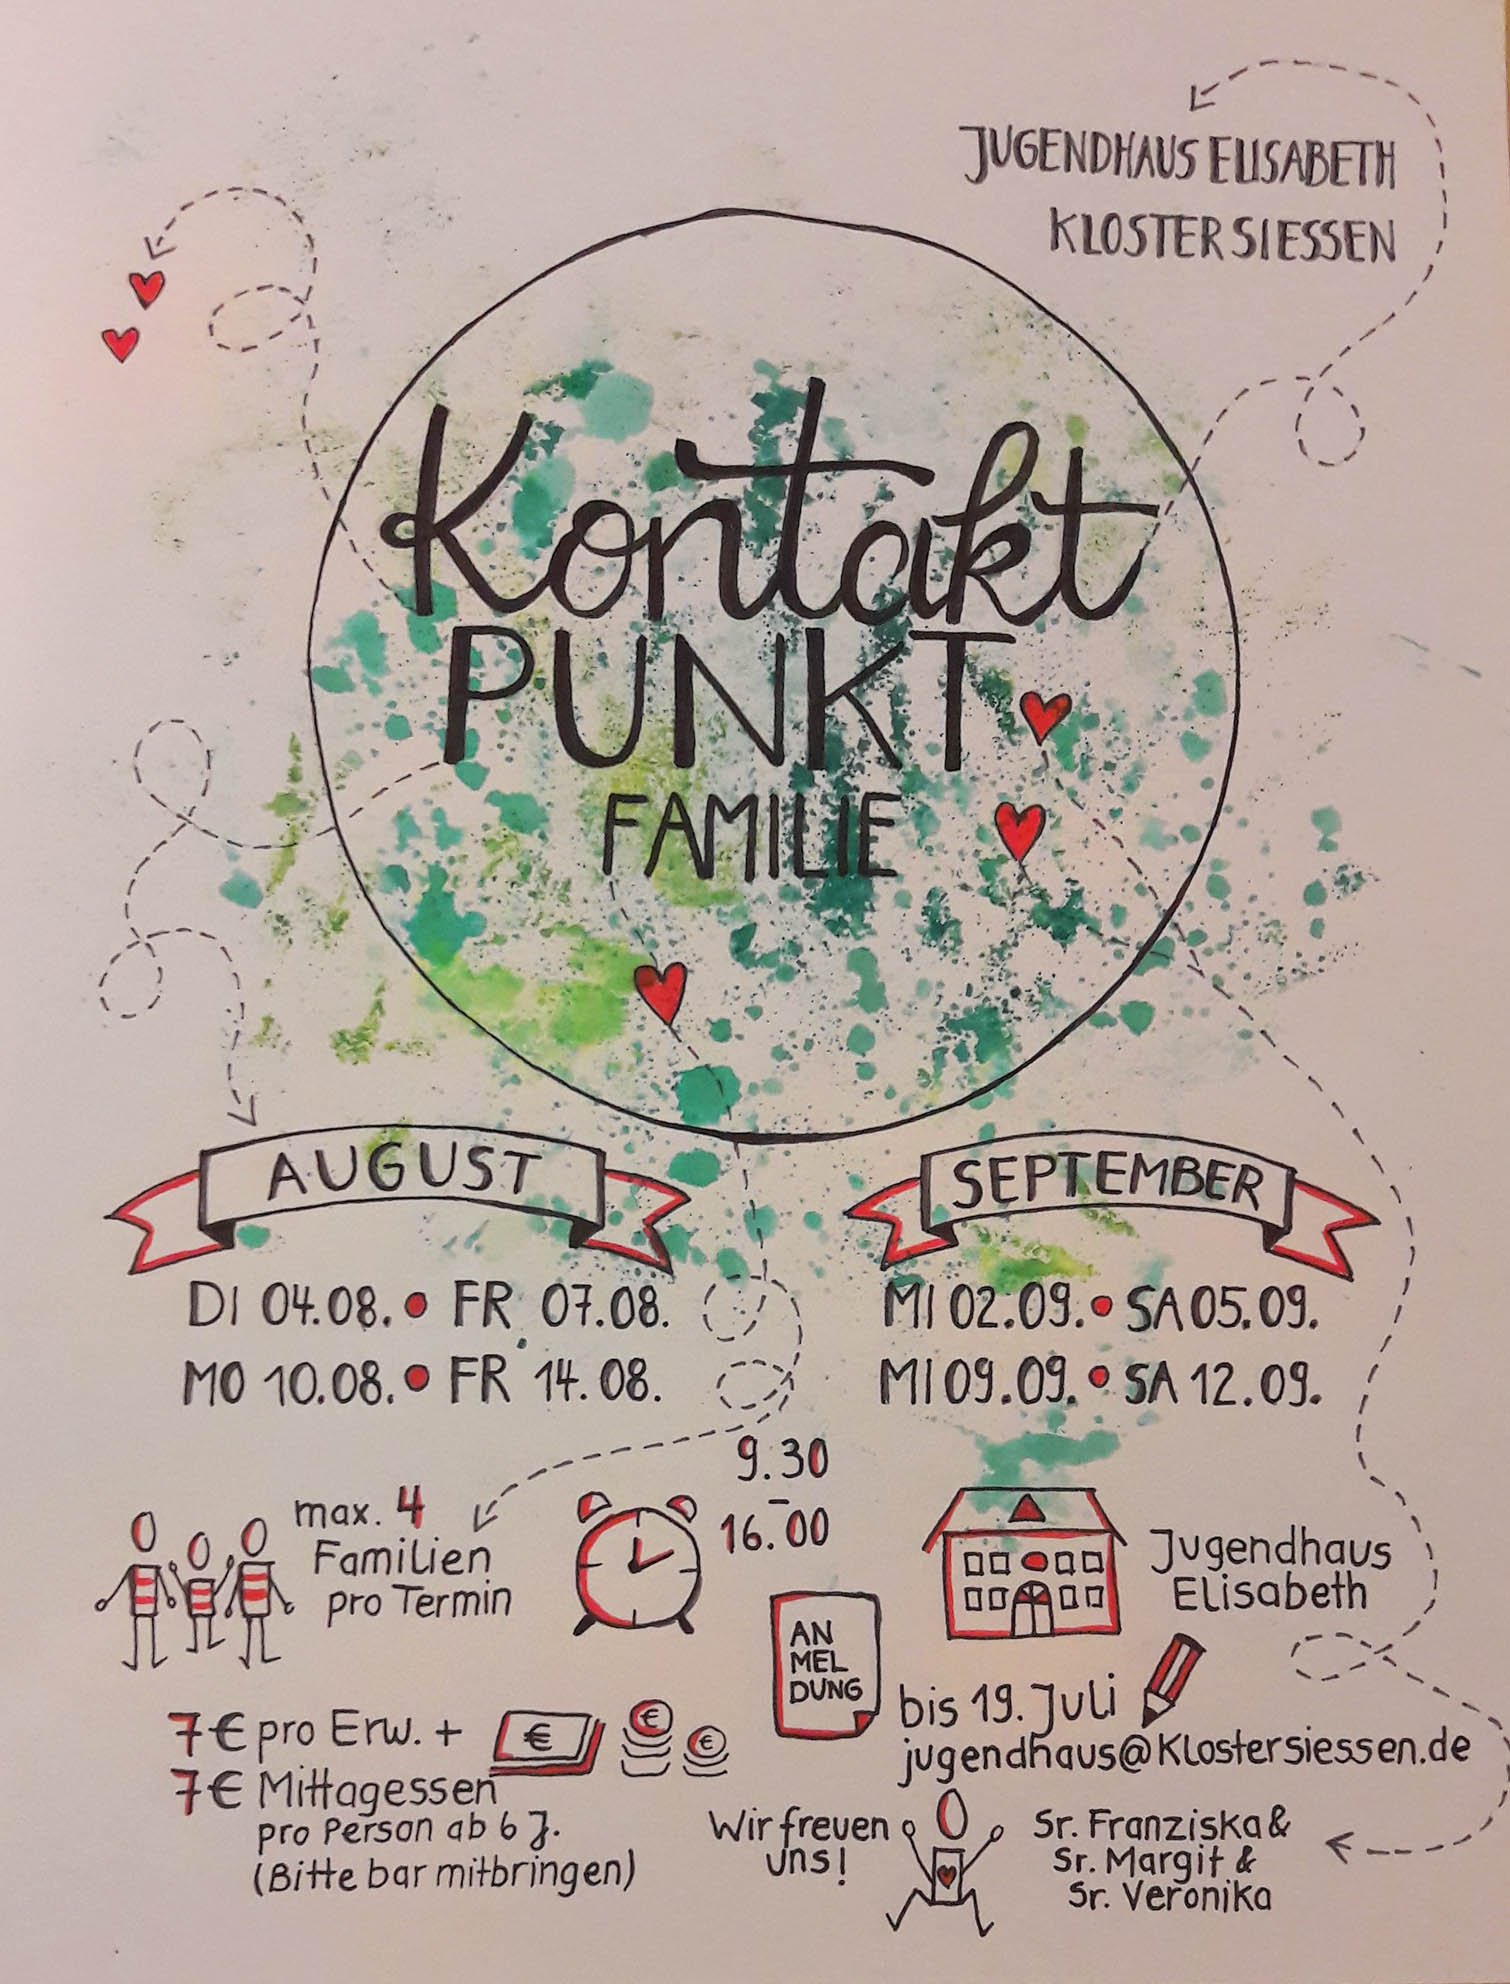 JUGENDHAUS ELISABETH
KLOSTER SIESSEN
Kontakt
PUNKT
FAMILIE
AUGUST
DI 04.08. • FR 07.08.
MO 10.08. • FR 14.08.
SEPTEMBER
MI 02.09. • SA 05.09.
MI 09.09. • SA 12.09.
max. 4
Familien
pro Termin
9.30
-
16.00
Jugendhaus
Elisabeth
AN
MEL
DUNG
bis 19. Juli
jugendhaus@klostersiessen.de
7€ pro Erw. +
7€ Mittagessen
pro Person ab 6 J.
(Bitte bar mitbringen)
€
€
€
Wir freuen
uns!
Sr. Franziska &
Sr. Margit &
Sr. Veronika